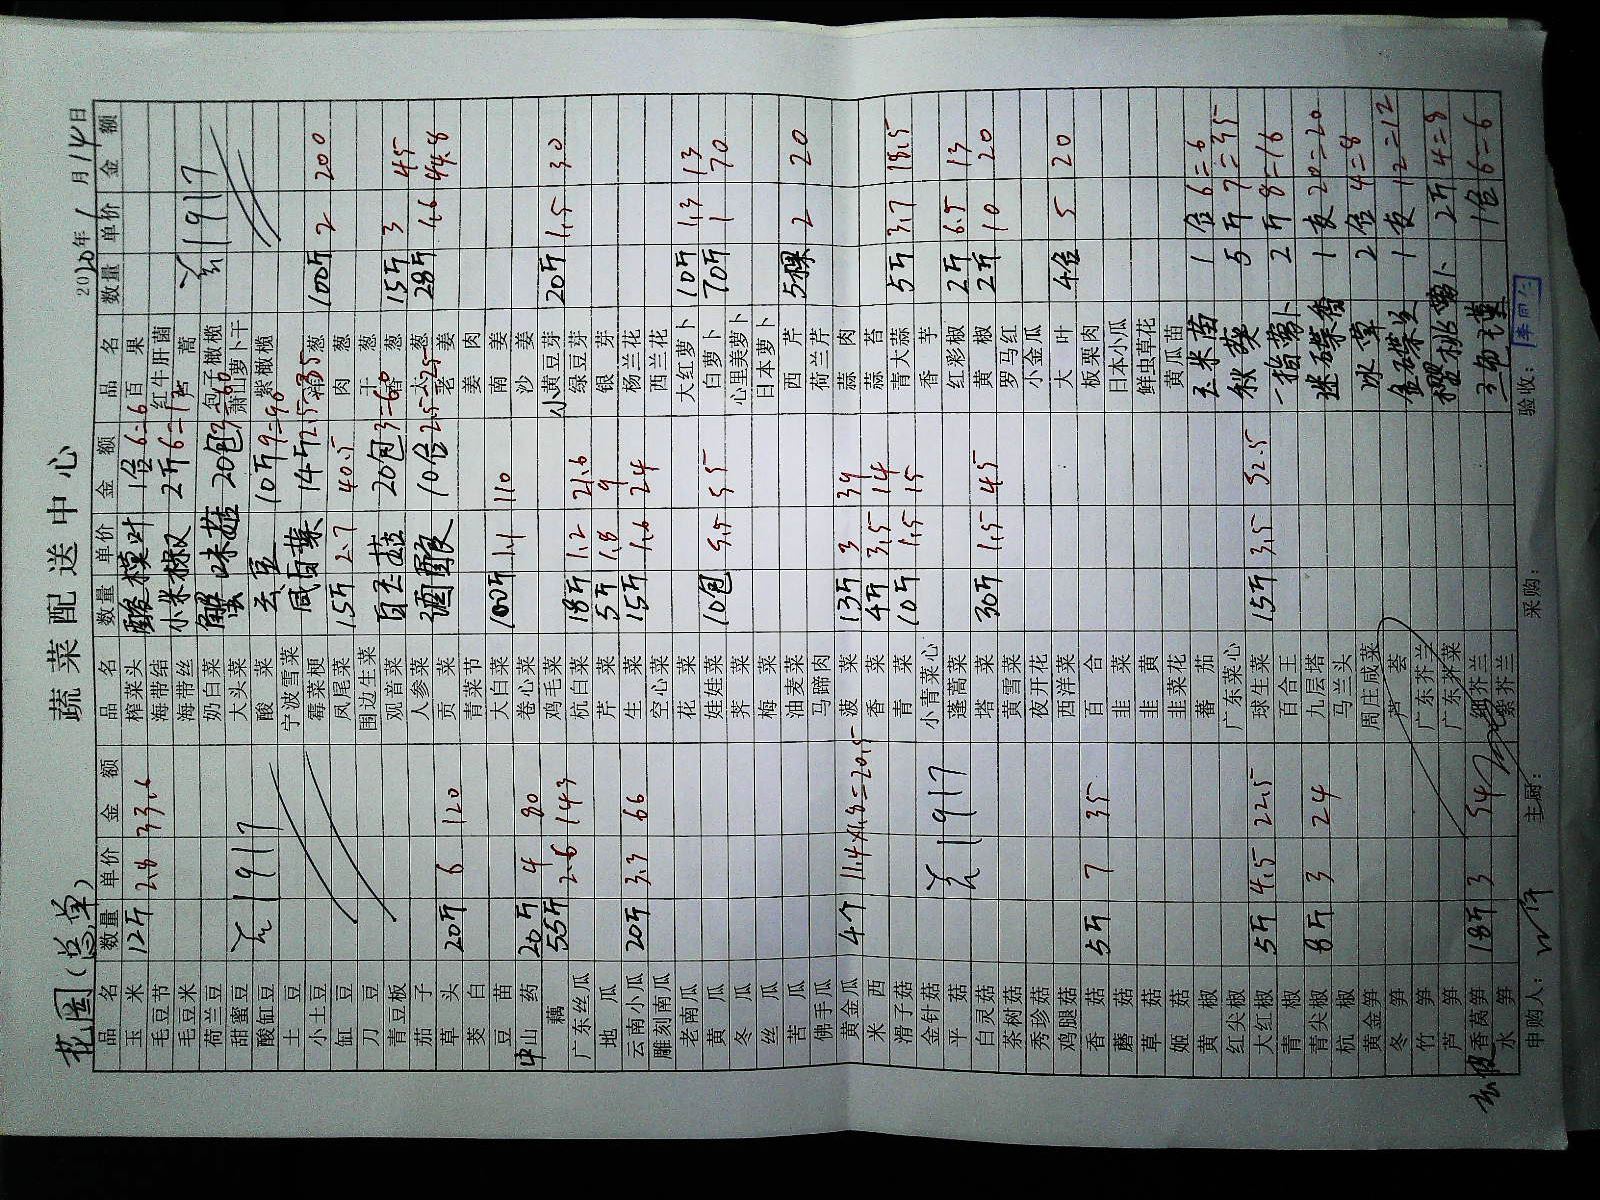 花园(总单)
蔬菜配送中心
2020年1月14日
品名 数量 单价 金额 品名 数量 单价 金额 品名 数量 单价 金额
玉米 12斤 2.8 33.6 榨菜头 酸模叶 1盒 6=6 百果
毛豆节 海带结 小米椒 2斤 6=12 红牛肝菌
毛豆米 海带丝 蒿
荷兰豆 奶白菜 蟹味菇 20包 3=60 包子橄榄
甜蜜豆 大头菜 萧山萝卜干
酸缸豆 酸菜 云豆 10斤 9=90 紫橄榄
土豆 宁波雪菜
小土豆 霉菜梗 咸白菜 14斤 2.5=35 葱 100斤 2 200
缸豆 凤尾菜 15斤 2.7 40.5 肉葱
刀豆 围边生菜 干葱
青豆板 观音菜 白玉菇 20包 3=60 香葱 15斤 3 45
茄子 人参菜 酒酿 10盒 2.5=25 大葱 28斤 1.6 44.8
草头 20斤 6 120 贡菜 老姜
茭白 青菜节 姜肉
豆苗 大白菜 100斤 1.1 110 南姜
山药 20斤 4 80 卷心菜 沙姜
藕 55斤 2.6 143 鸡毛菜 小黄豆芽 20斤 1.5 30
广东丝瓜 杭白菜 18斤 1.2 21.6 绿豆芽
地瓜 芹菜 5斤 1.8 9 银芽
云南小瓜 20斤 3.3 66 生菜 15斤 1.6 24 杨兰花
雕刻南瓜 空心菜 西兰花
老南瓜 花菜 大红萝卜 10斤 1.3 13
黄瓜 娃娃菜 10包 5.5 55 白萝卜 70斤 1 70
冬瓜 荠菜 心里美萝卜
丝瓜 梅菜 日本萝卜
苦瓜 油麦菜 西芹 5棵 2 20
佛手瓜 马蹄肉 荷兰芹
黄金瓜 4个 11.4×1.8=20.5 菠菜 13斤 3 39 蒜肉
米西 香菜 4斤 3.5 14 蒜苔
滑子菇 青菜 10斤 1.5 15 青大蒜 5斤 3.7 18.5
金针菇 小青菜心 香芋
平菇 蓬蒿菜 红彩椒 2斤 6.5 13
白灵菇 塔菜 30斤 1.5 45 黄椒 2斤 10 20
茶树菇 黄雪菜 罗马红
秀珍菇 夜开花 小金瓜
鸡腿菇 西洋菜 大叶 4盒 5 20
香菇 5斤 7 35 百合 板栗肉
蘑菇 韭菜 日本小瓜
草菇 韭黄 鲜虫草花
姬菇 韭菜花 黄瓜苗
黄椒 蕃茄 玉米苗 1盒 6=6
红尖椒 广东菜心 秋葵 5斤 7=35
大红椒 5斤 4.5 22.5 球生菜 15斤 3.5 52.5 一指萝卜 2斤 8=16
青椒 百合王
青尖椒 8斤 3 24 九层塔 迷迭香 1支 20=20
杭椒 马兰头 冰草 2盒 4=8
黄金笋 周庄咸菜 金碟兰 1支 12=12
冬笋 芦荟
竹笋 广东芥兰 樱桃萝卜 2斤 4=8
芦笋 广东芥菜
香莴笋 18斤 3 54 细芥兰 三色堇 1盒 6=6
水笋 紫芥兰
申购人： 主厨： 采购： 验收：